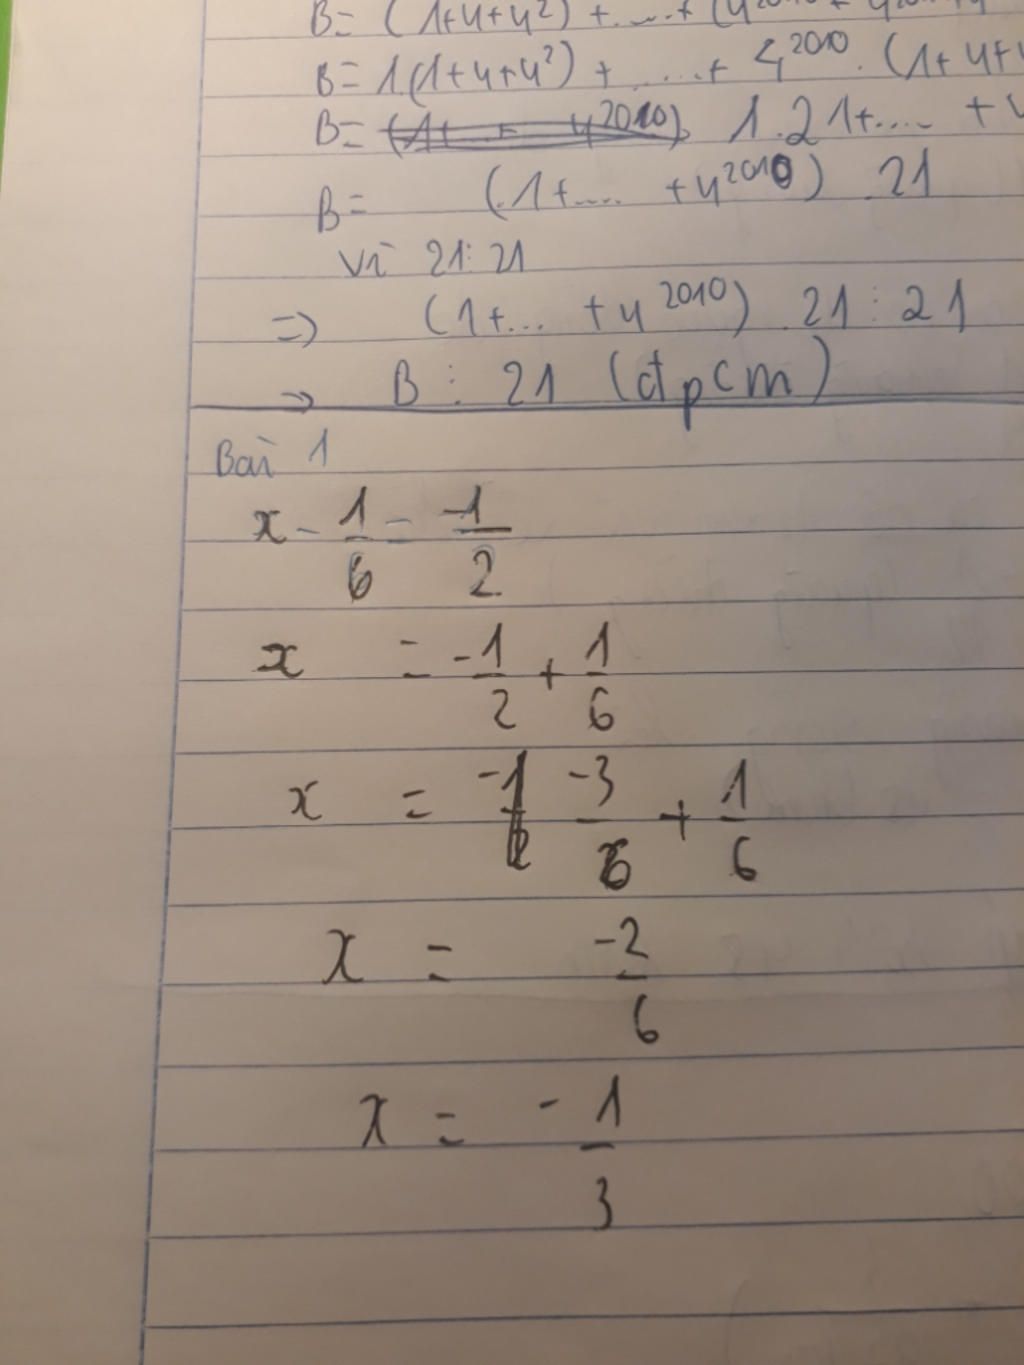 B= (1+4+4²) + ..... + (4
B= 1.(1+4+4²) + ..... + 4²⁰¹⁰. (1+4+
B= 1.21+.... +
B= (1+.... +4²⁰¹⁰) .21
Vì 21⋮21
=> (1+... +4²⁰¹⁰) .21⋮21
=> B⋮21 (đpcm)
Bài 1
x - 1/6 = -1/2
x = -1/2 + 1/6
x = -3/6 + 1/6
x = -2/6
x = -1/3